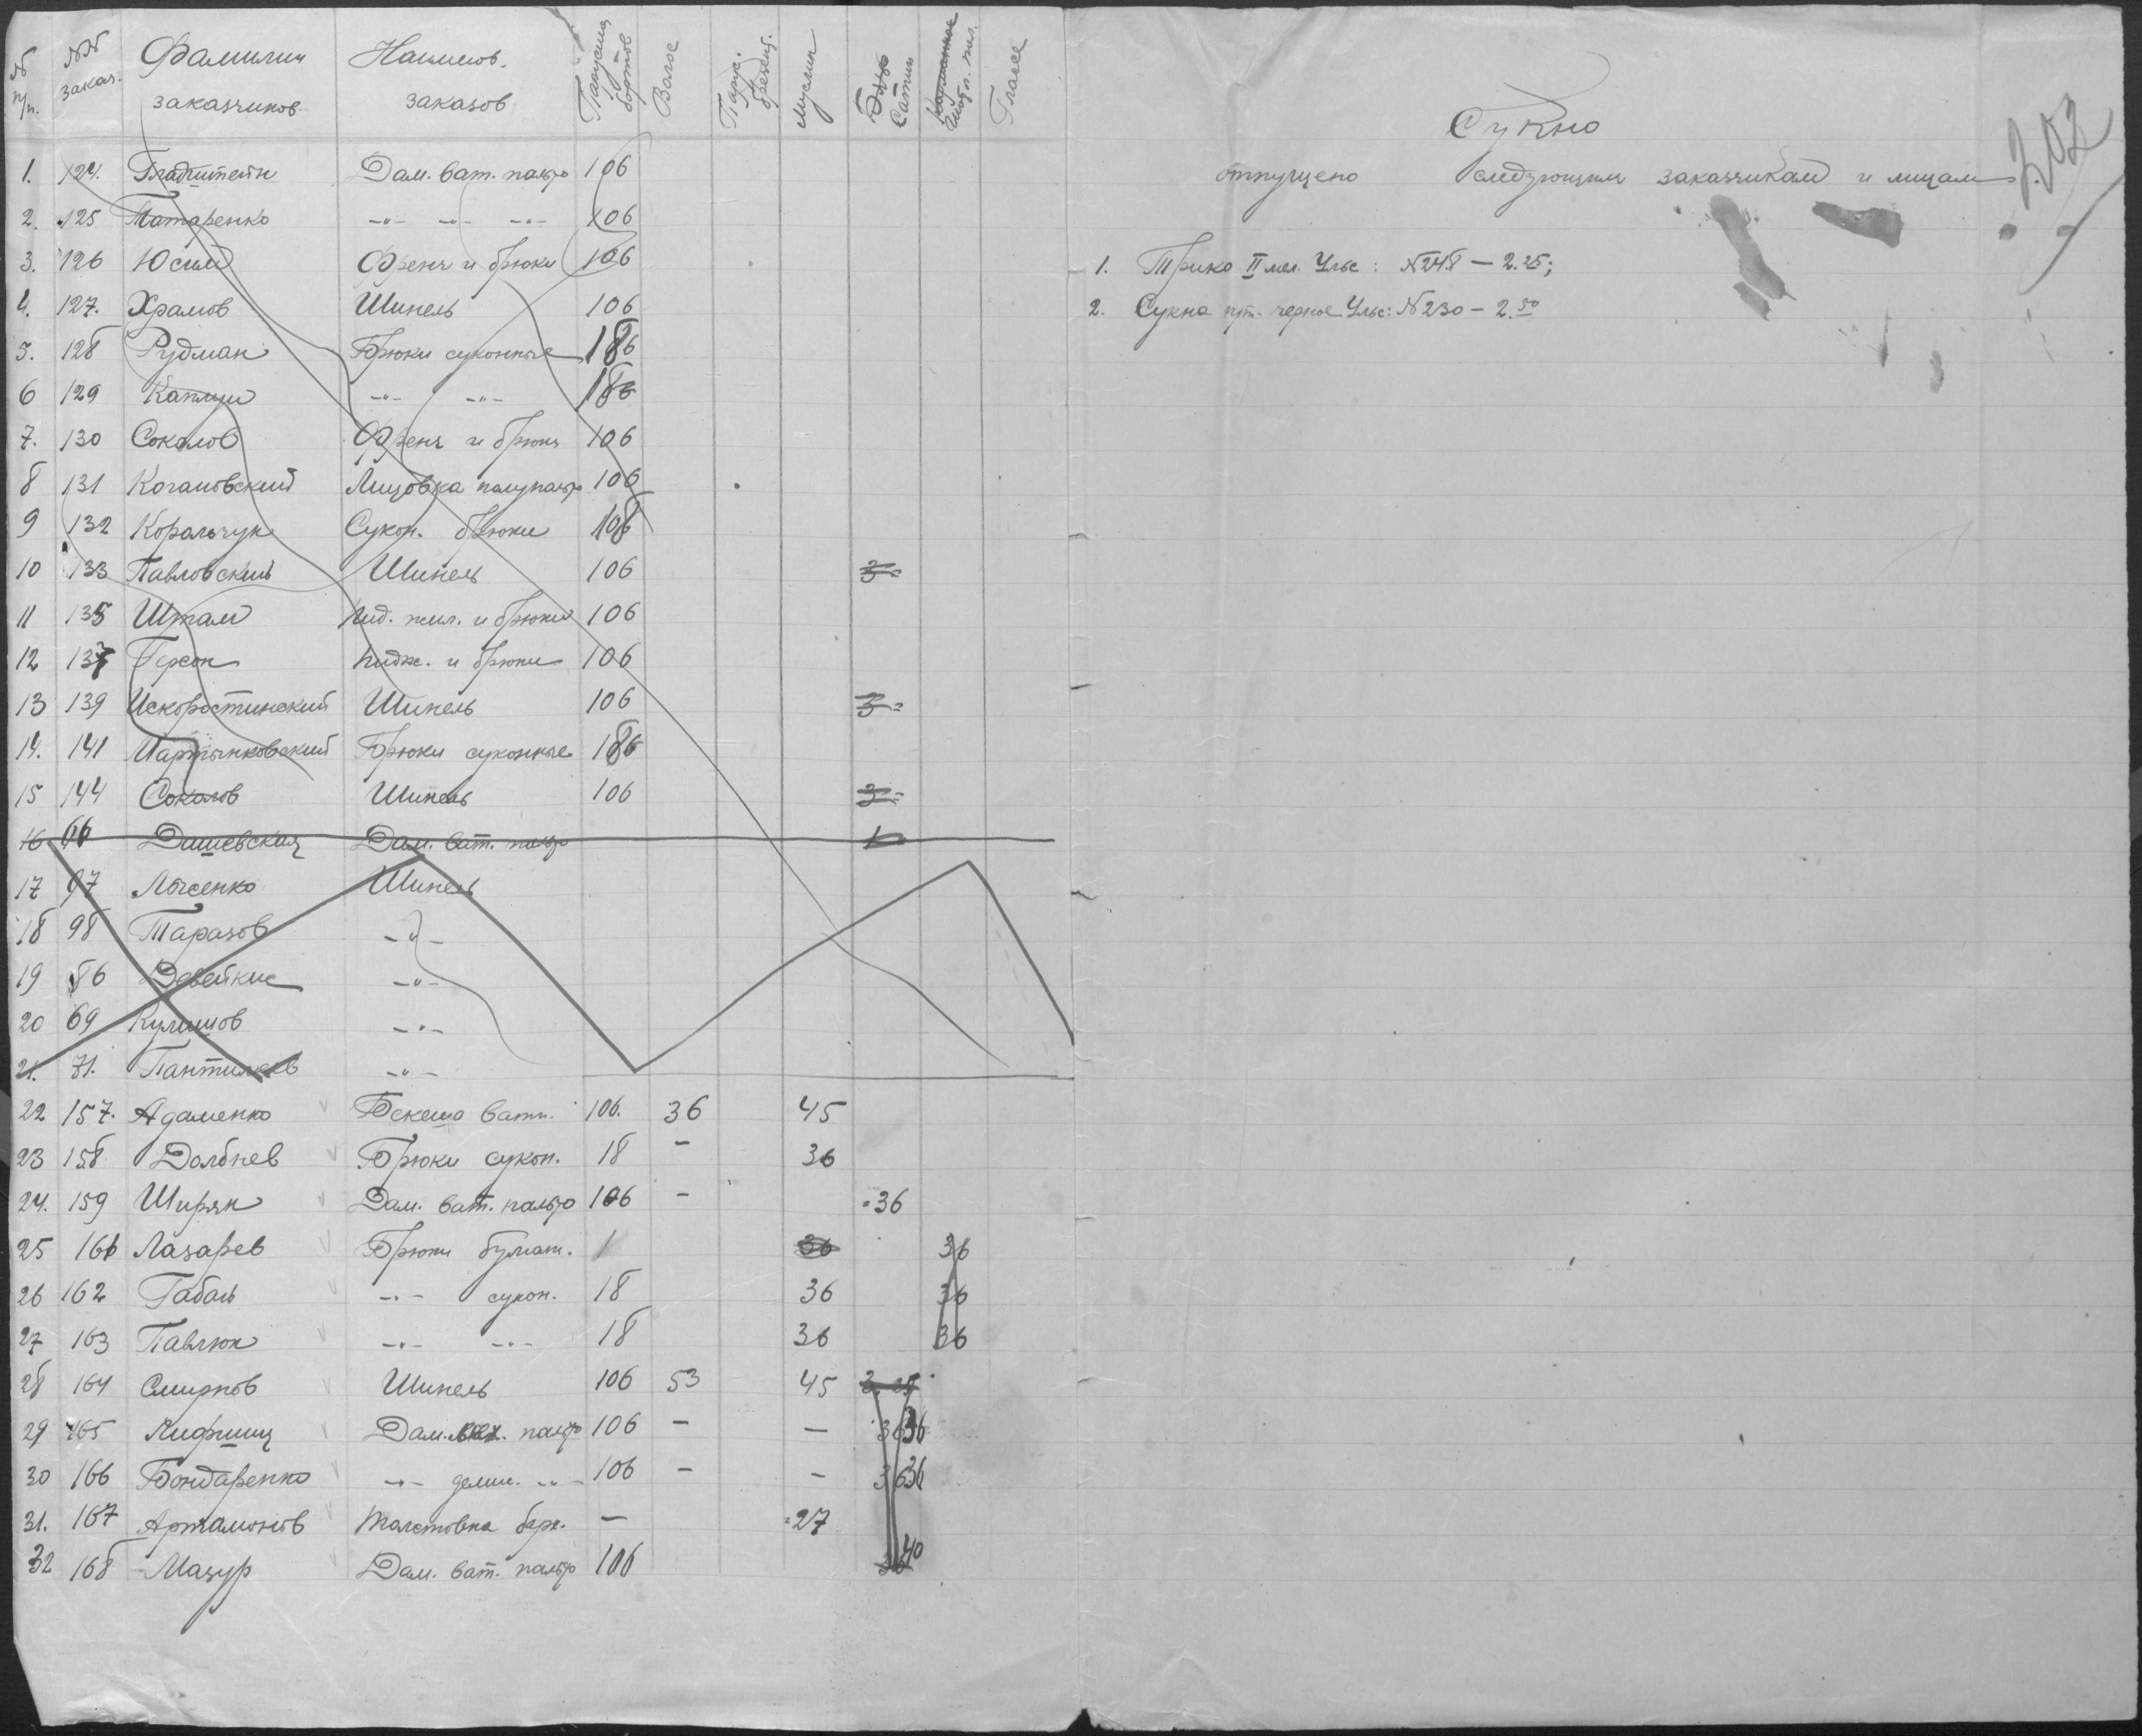 № п/п. №№ заказ. Фамилии заказчиков Наимнов. заказов Парусина бортов Волос Парус. брезент. Муслин Сатин Гласе
1. 124. Гладштейн Дам. ват. пальто 106
2. 125 Татаренко -"- -"- -"- 106
3. 126 Юсим Френч и брюки 106
4. 127. Храмов Шинель 106
5. 128 Рудман Брюки суконные 186
6 129 Каплун -"- -"- 186
7. 130 Соколов Френч и брюки 106
8 131 Когановский Лицовка полупальто 106
9 132 Коральчук Сукон. брюки 108
10 133 Павловский Шинель 106 3-
11 135 Штам Пид. жил. и брюки 106
12 137 Герсон Пидж. и брюки 106
13 139 Искоростинский Шинель 106 3-
14. 141 Мартынковский Брюки суконные 186
15 144 Соколов Шинель 106 3-
16 66 Дашевская Дам. ват. пальто 1
17 97 Лысенко Шинель
18 98 Таразов -"-
19 86 Девейкис -"-
20 69 Кулишов -"-
21. 71. Пантилеев -"-
22 157. Адаменко Бекеша ватн. 106. 36 45
23 158 Долбнев Брюки сукон. 18 - 36
24. 159 Ширяк Дам. ват. пальто 106 - 36
25 161 Лазарев Брюки бумаж. 1 36 36
26 162 Габаль -"- сукон. 18 36 36
27 163 Павлюк -"- -"- 18 36 36
28 164 Смирнов Шинель 106 53 45
29 165 Лифшиц Дам. пальто 106 - - 36 36
30 166 Бондаренко -"- демис. -"- 106 - - 36 36
31. 167 Артамонов Толстовка барх. - 27
32 168 Мазур Дам. ват. пальто 106 40
302
Сукно
отпущено следующим заказчикам и лицам.
1. Трико II мел. Ульс: №248 - 2.25;
2. Сукна черное Ульс: №230 - 2.50